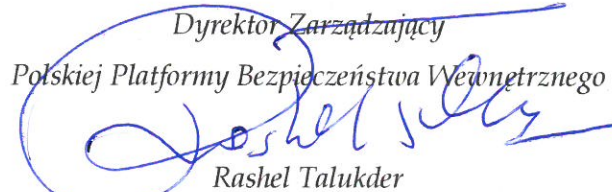 Dyrektor Zarządzający
Polskiej Platformy Bezpieczeństwa Wewnętrznego
Rashel Talukder